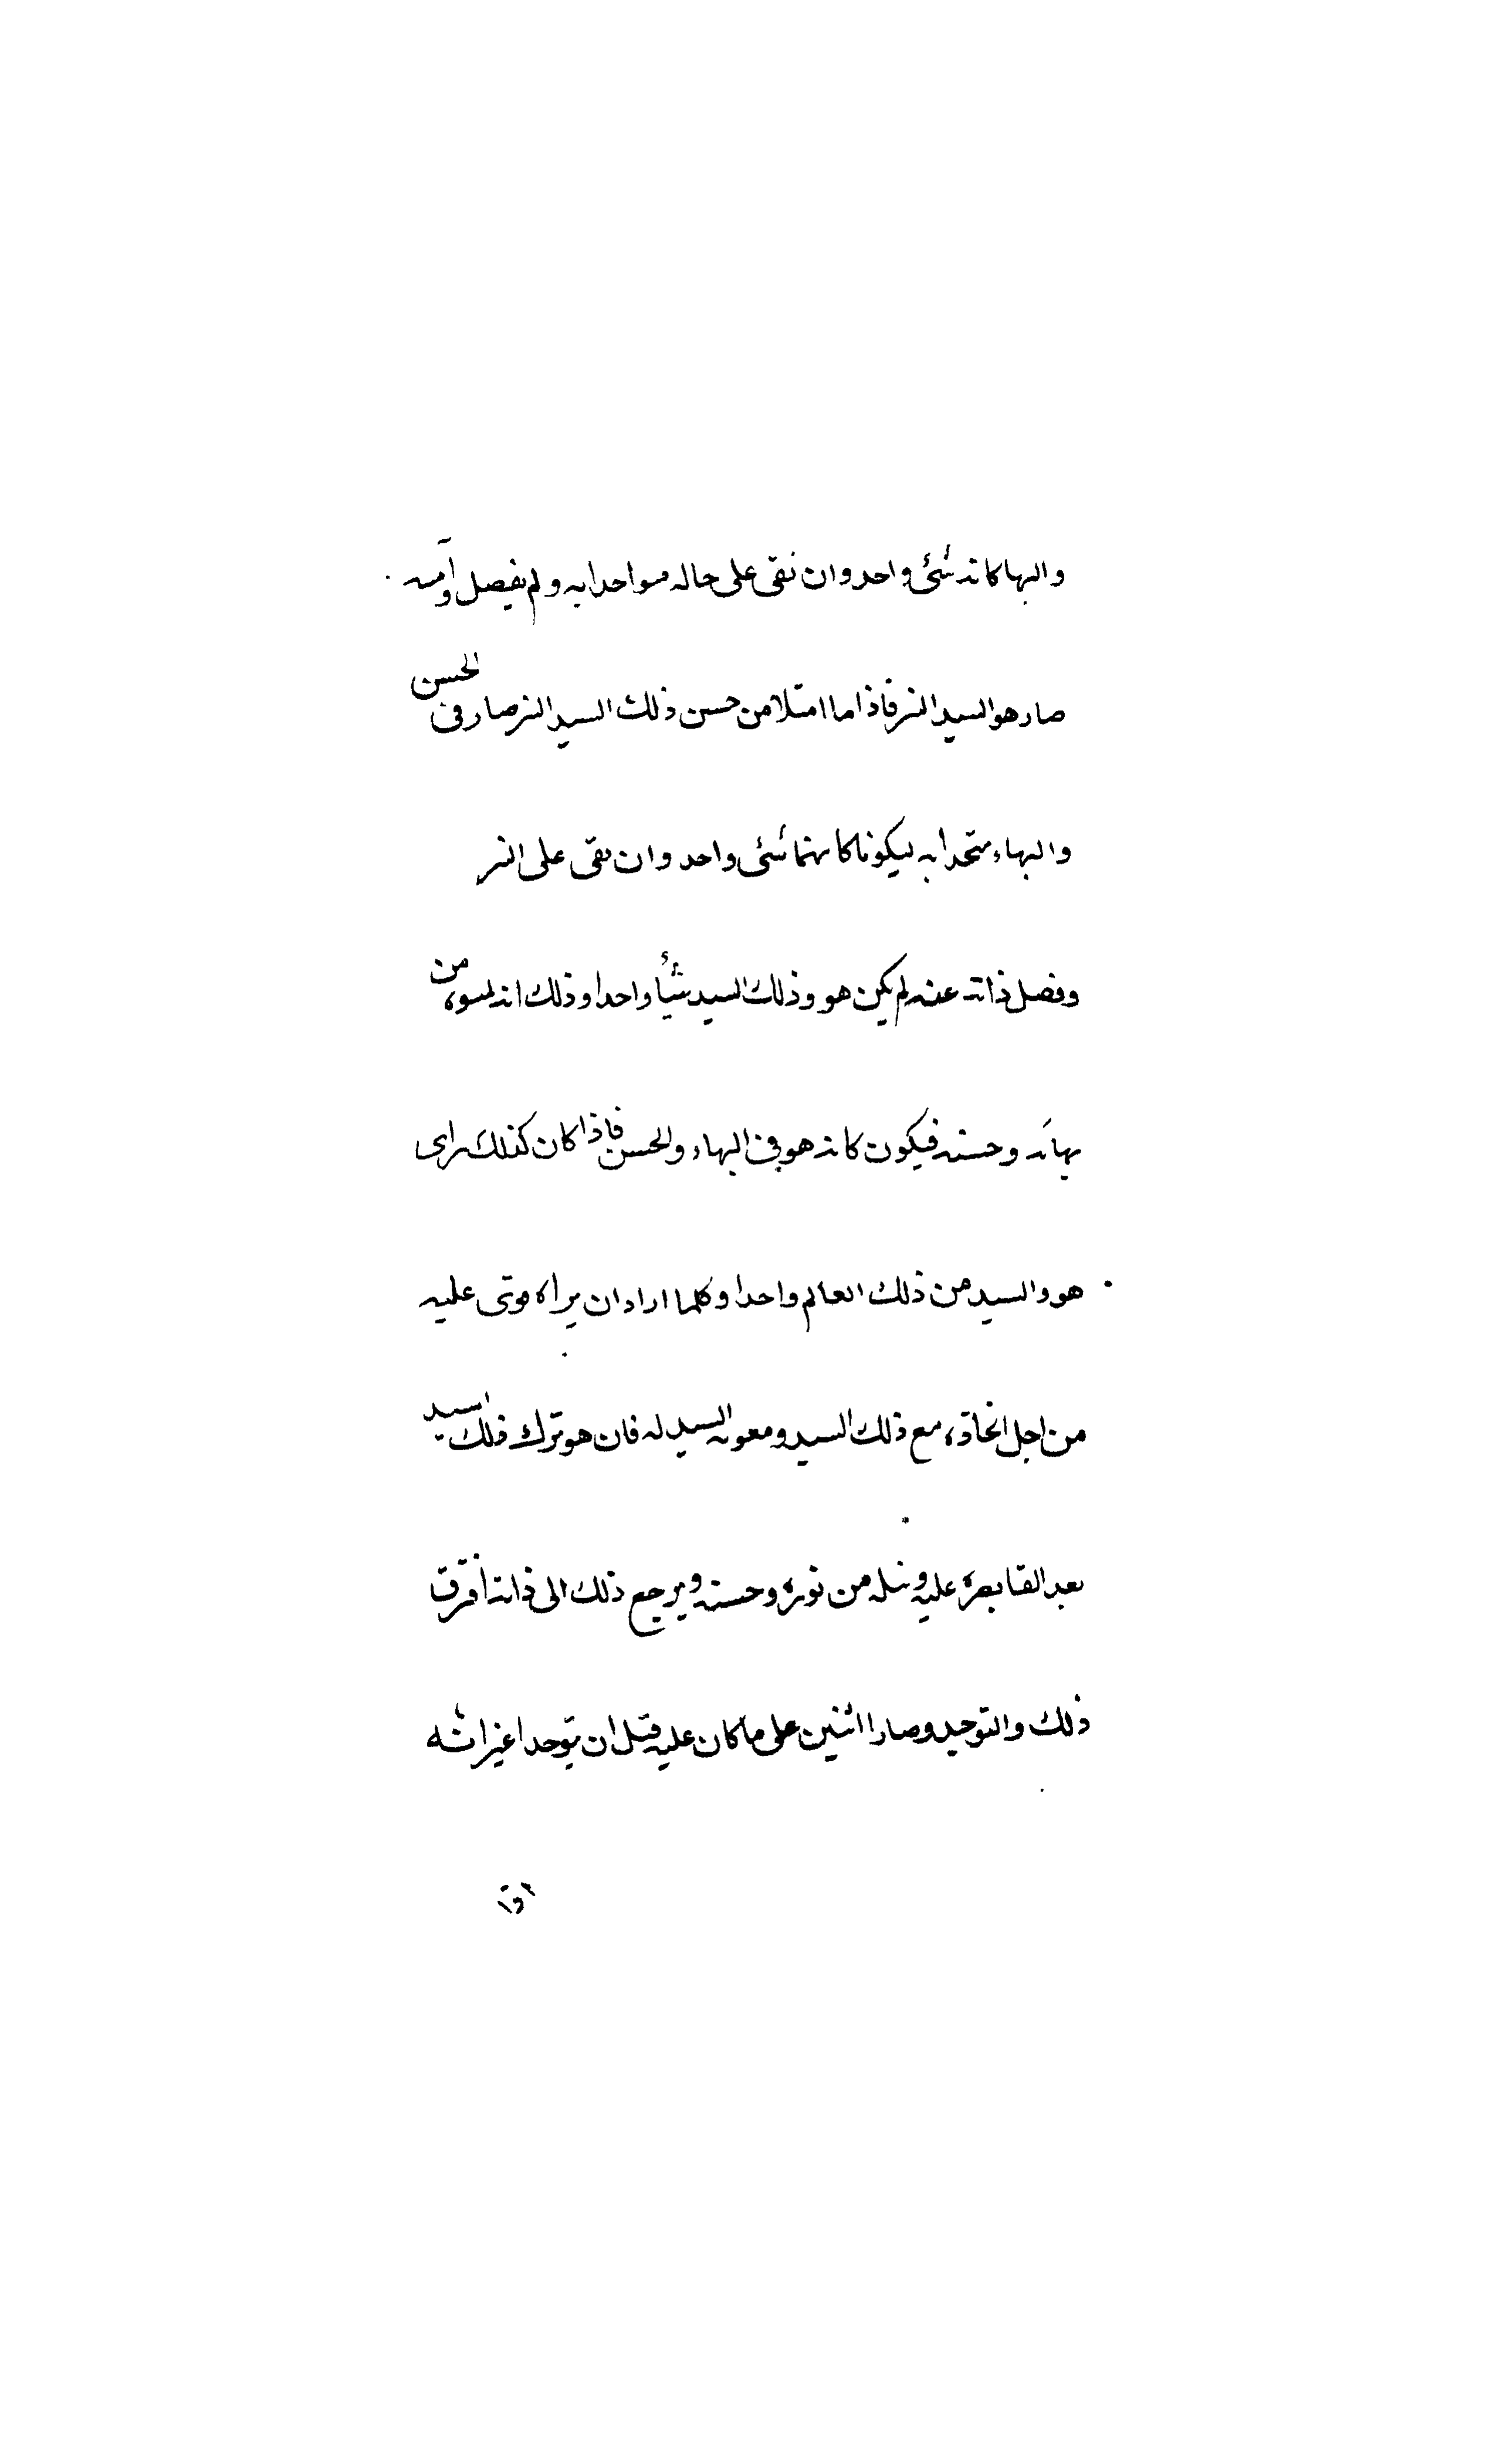 والبها كانه شئ واحد وان نقى على حاله متواحدا به ولم يفصل
صار هو السيد النير فاذا ما امتلا من حسن ذلك السيد النير صار فى الحسن
والبهاء متحدا به ليكونا كانهما شئ واحد وان بقى على النير
وفصل ذاته عنه لم يكن هو وذلك السيد شيأ واحدا وذلك انه لسوء من
بهائه وحسنه فيكون كانه هو فى البهاء والحسن فاذا كان كذلك راى
هو والسيد من ذلك العالم واحدا وكلما اراد ان يراه قوتى عليه
من اجل اتحاده مع ذلك السيد ومعونه السيد له فان هو ترك ذلك السيد
بعد القا بصره عليه ونيله من نوره وحسنه ويرجع ذلك الى ذاته افترق
ذلك والتوحيد وصارا اثنين على ما كان عليه قبل ان يتوحدا غير انه